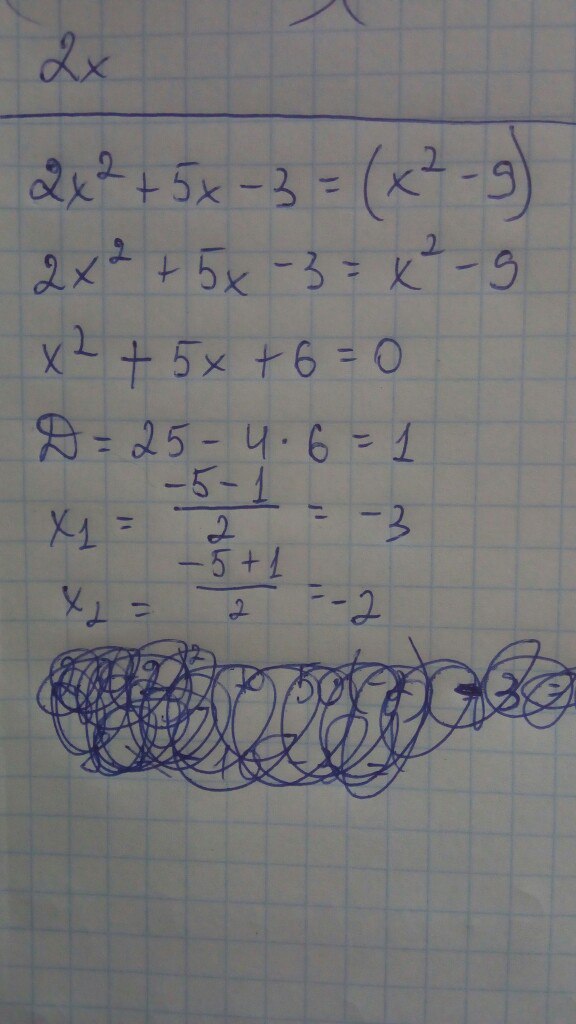 2x
2x² + 5x - 3 = (x² - 9)
2x² + 5x - 3 = x² - 9
x² + 5x + 6 = 0
D = 25 - 4 · 6 = 1
x₁ = (-5 - 1)/2 = -3
x₂ = (-5 + 1)/2 = -2